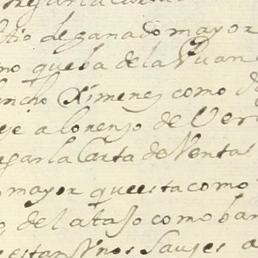 sitio de ganado mayor
mo queda de la Juan
ancho Ximenez como de
a lorenzo de Ver
pagar la Carta de Ventas
mayor que esta como
del atajo como ban
estan Unos Sauses a